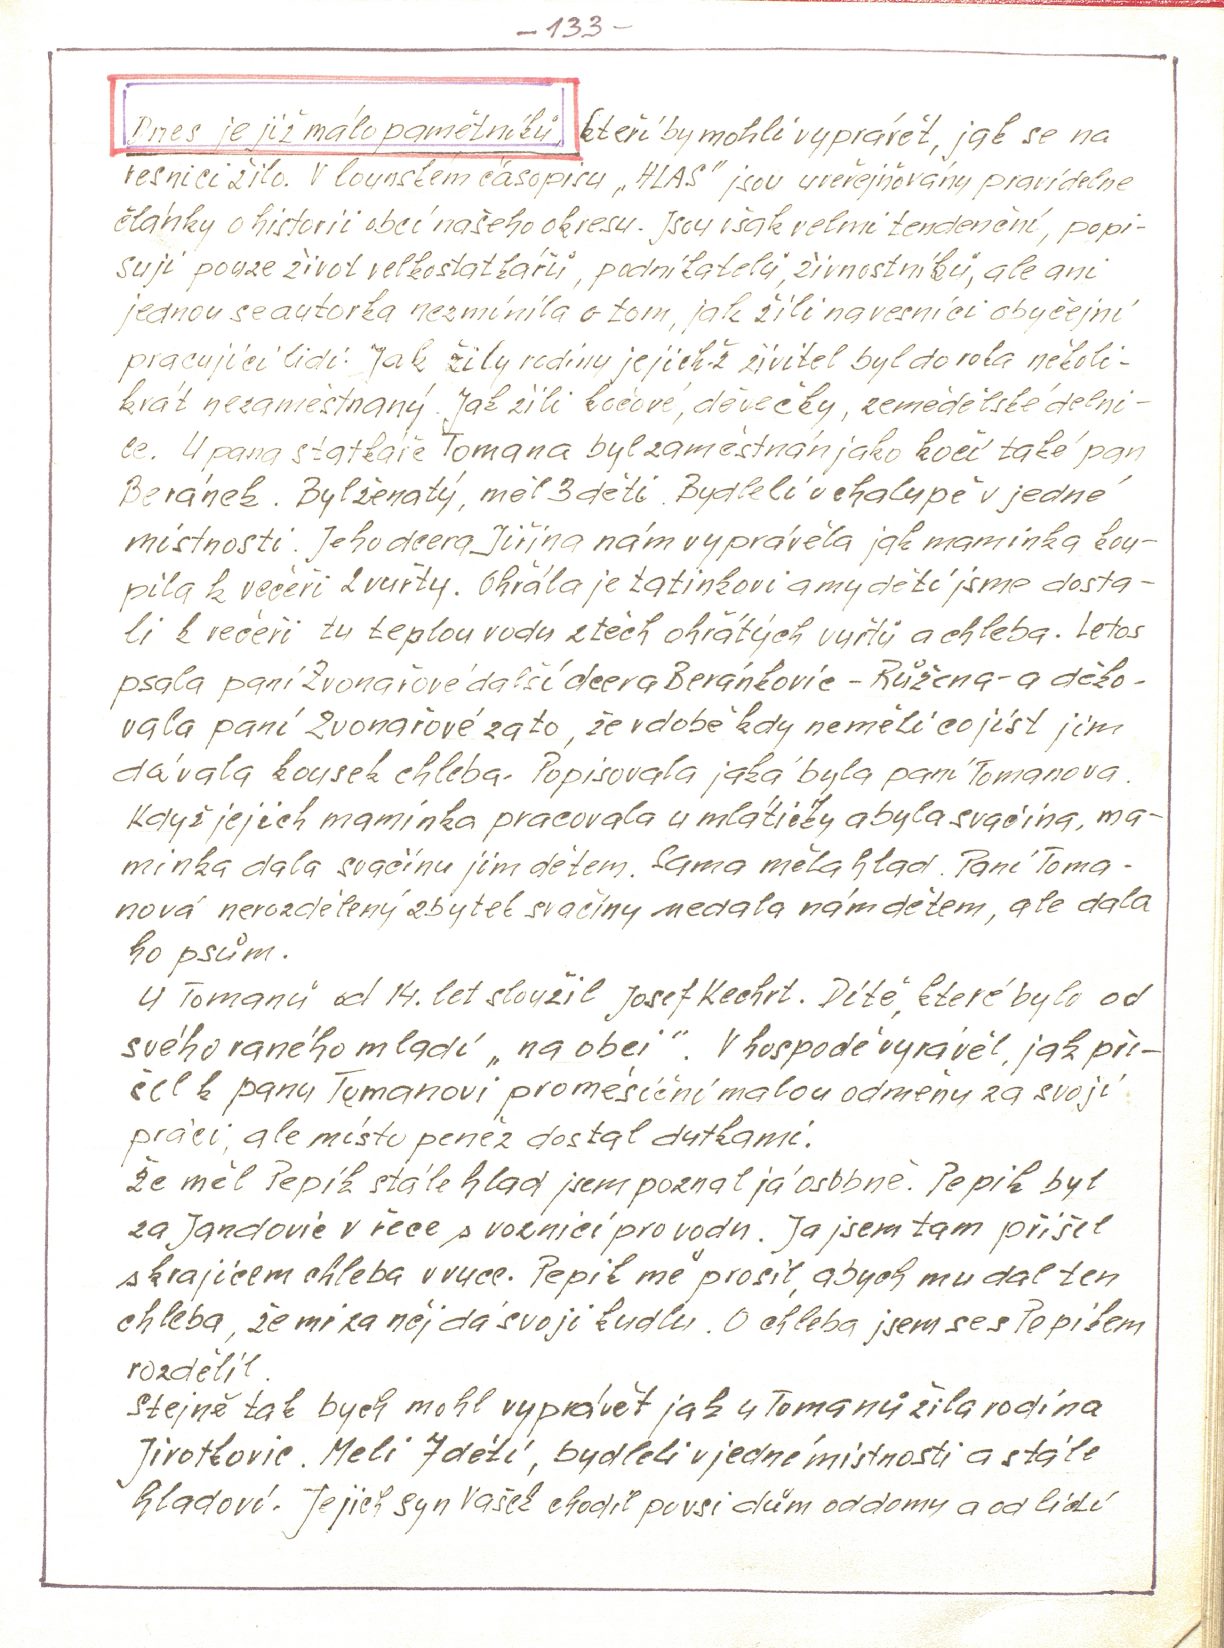 - 133 -
Dnes je již málo pamětníků, kteří by mohli vyprávět, jak se na
vesnici žilo. V lounském časopisu „HLAS" jsou uveřejňovány pravidelne
články o historii obcí našeho okresu. Jsou však velmi tendenční, popi-
sují pouze život velkostatkářů, podnikatelů, živnostníků, ale ani
jednou se autorka nezmínila o tom, jak žili na vesnici obyčejní
pracující lidi. Jak žily rodiny jejichž živitel byl do roka několi-
krát nezaměstnaný. Jak žili kočové, děvečky, zemědělské dělni-
ce. U pana statkáře Tomana byl zaměstnán jako kočí také pan
Beránek. Byl ženatý, měl 3 děti. Bydleli v chalupě v jedné
místnosti. Jeho dcera Jiřina nám vyprávěla jak maminka kou-
pila k večeři 2 vuřty. Ohřála je tatínkovi a my děti jsme dosta-
li k večeři tu teplou vodu z těch ohřátých vuřtů a chleba. Letos
psala paní Zvonařové další dcera Beránkovic - Růžena - a děko-
vala paní Zvonařové za to, že v době kdy neměli co jíst jim
dávala kousek chleba. Popisovala jaká byla paní Tomanova.
Když jejich maminka pracovala u mlátičky a byla svačina, ma-
minka dala svačinu jim dětem. Sama měla hlad. Paní Toma-
nová nerozdělený zbytek svačiny nedala nám dětem, ale dala
ho psům.
U Tomanů od 14. let sloužil Josef Kechrt. Dítě, které bylo od
svého raného mladí „na obci". V hospodě vyrávěl, jak při-
šel k panu Tomanovi pro měsíční malou odměnu za svoji
práci, ale místo peněz dostal dutkami.
Že měl Pepík stále hlad jsem poznal já osobně. Pepik byl
za Jandovic v řece s voznicí pro vodu. Ja jsem tam přišel
s krajícem chleba v ruce. Pepik mě prosil, abych mu dal ten
chleba, že mi za něj dá svoji kudlu. O chleba jsem se s Pepíkem
rozdělil.
Stejně tak bych mohl vyprávět jak u Tomanů žila rodina
Jirotkovic. Meli 7 dětí, bydleli v jedné místnosti a stále
hladoví. Jejich syn Vašek chodil po vsi dům od domu a od lidí